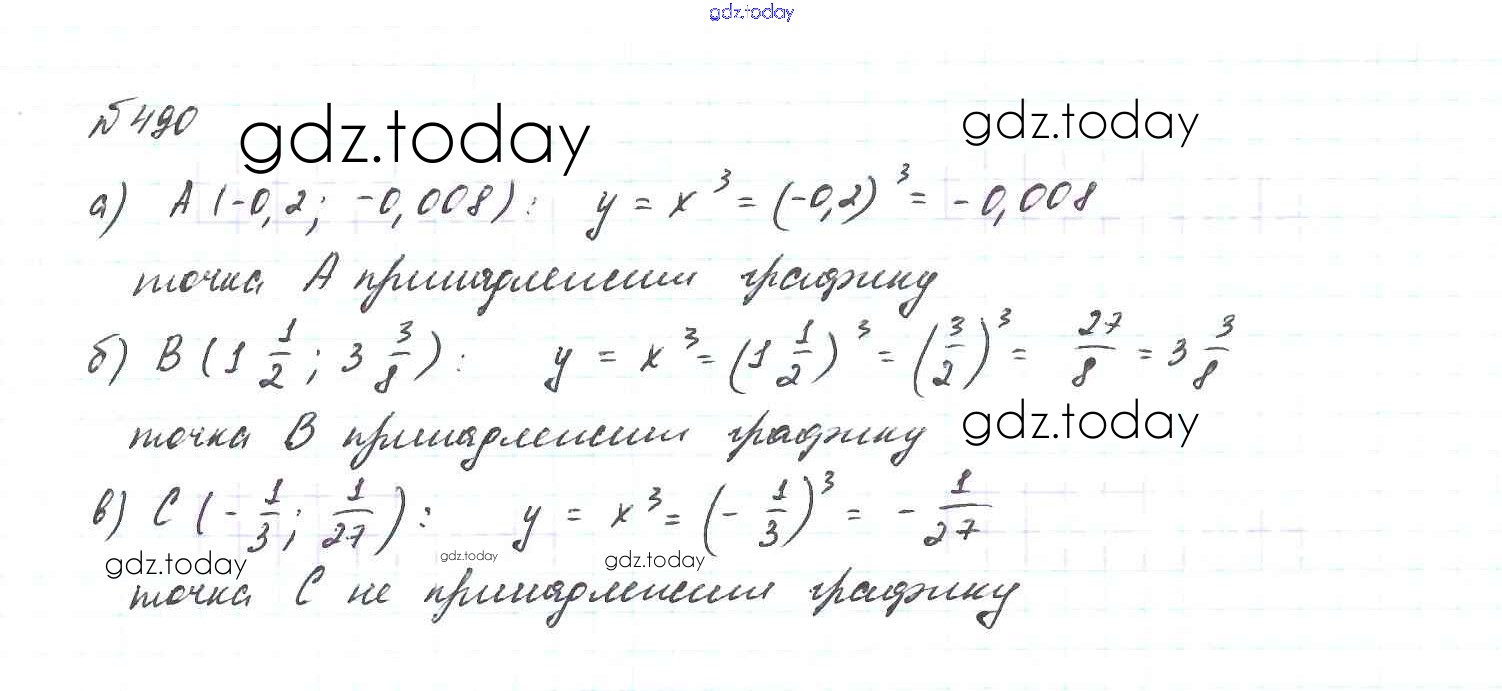 gdz.today
№490
gdz.today gdz.today
а) A (-0,2; -0,008): y = x³ = (-0,2)³ = -0,008
точка А принадлежит графику
б) B (1 1/2; 3 3/8): y = x³ = (1 1/2)³ = (3/2)³ = 27/8 = 3 3/8
точка В принадлежит графику gdz.today
в) C (-1/3; 1/27): y = x³ = (-1/3)³ = -1/27
gdz.today gdz.today gdz.today
точка С не принадлежит графику